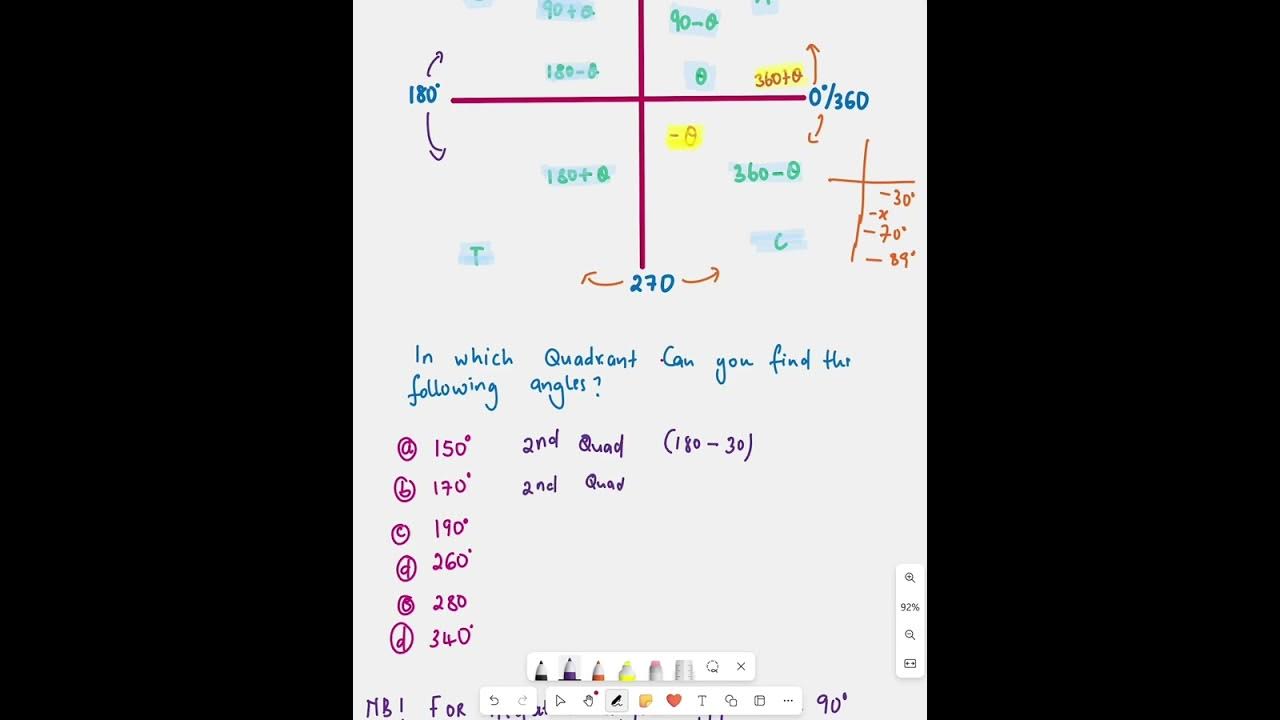 90+θ 90-θ
180-θ θ 360+θ
180° 0°/360
-θ
180+θ 360-θ
-30°
-x
-70°
-89°
T C
270
In which Quadrant Can you find the
following angles?
ⓐ 150° 2nd Quad (180-30)
ⓑ 170° 2nd Quad
ⓒ 190°
ⓓ 260°
ⓔ 280
ⓓ 340°
92%
T
NB! For 90°